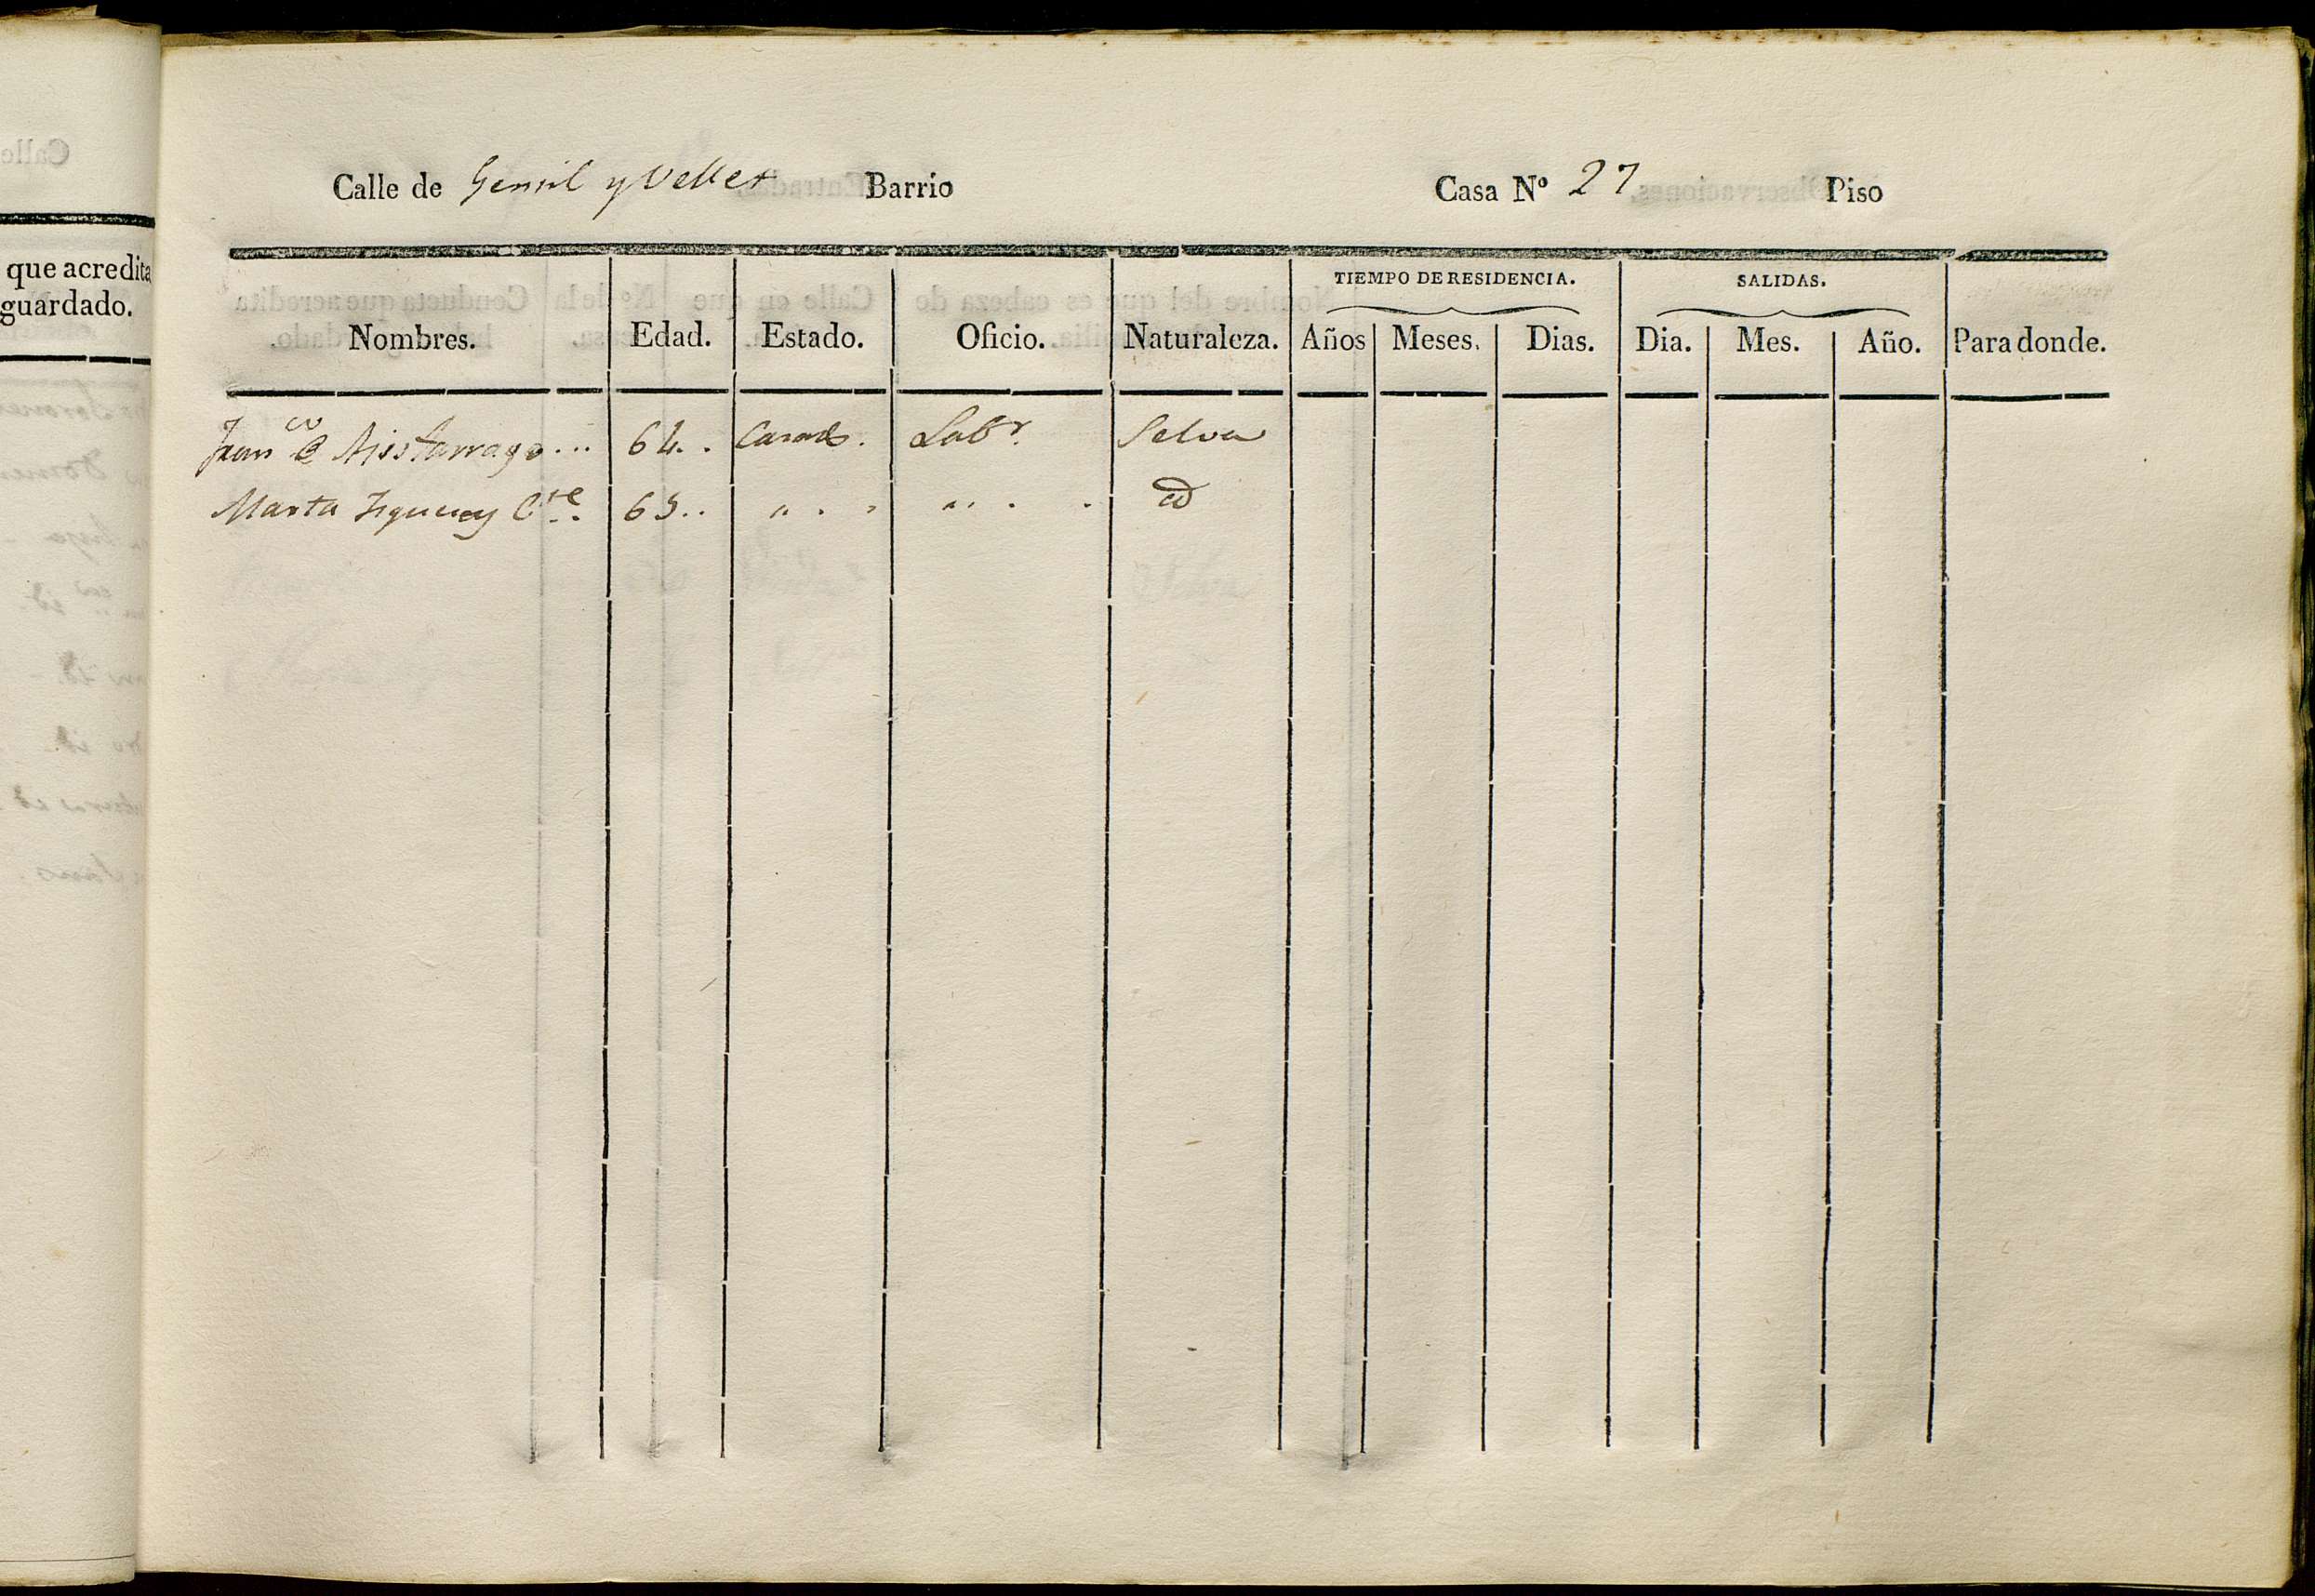 que acredita
guardado.
Calle de Gomil y Vellet Barrio Casa Nº 27 Piso
TIEMPO DE RESIDENCIA. SALIDAS.
Nombres. Edad. Estado. Oficio. Naturaleza. Años Meses. Dias. Dia. Mes. Año. Para donde.
64.. Casado. Labr. Selva
Marta Cte.. 65.. " . . " . . id